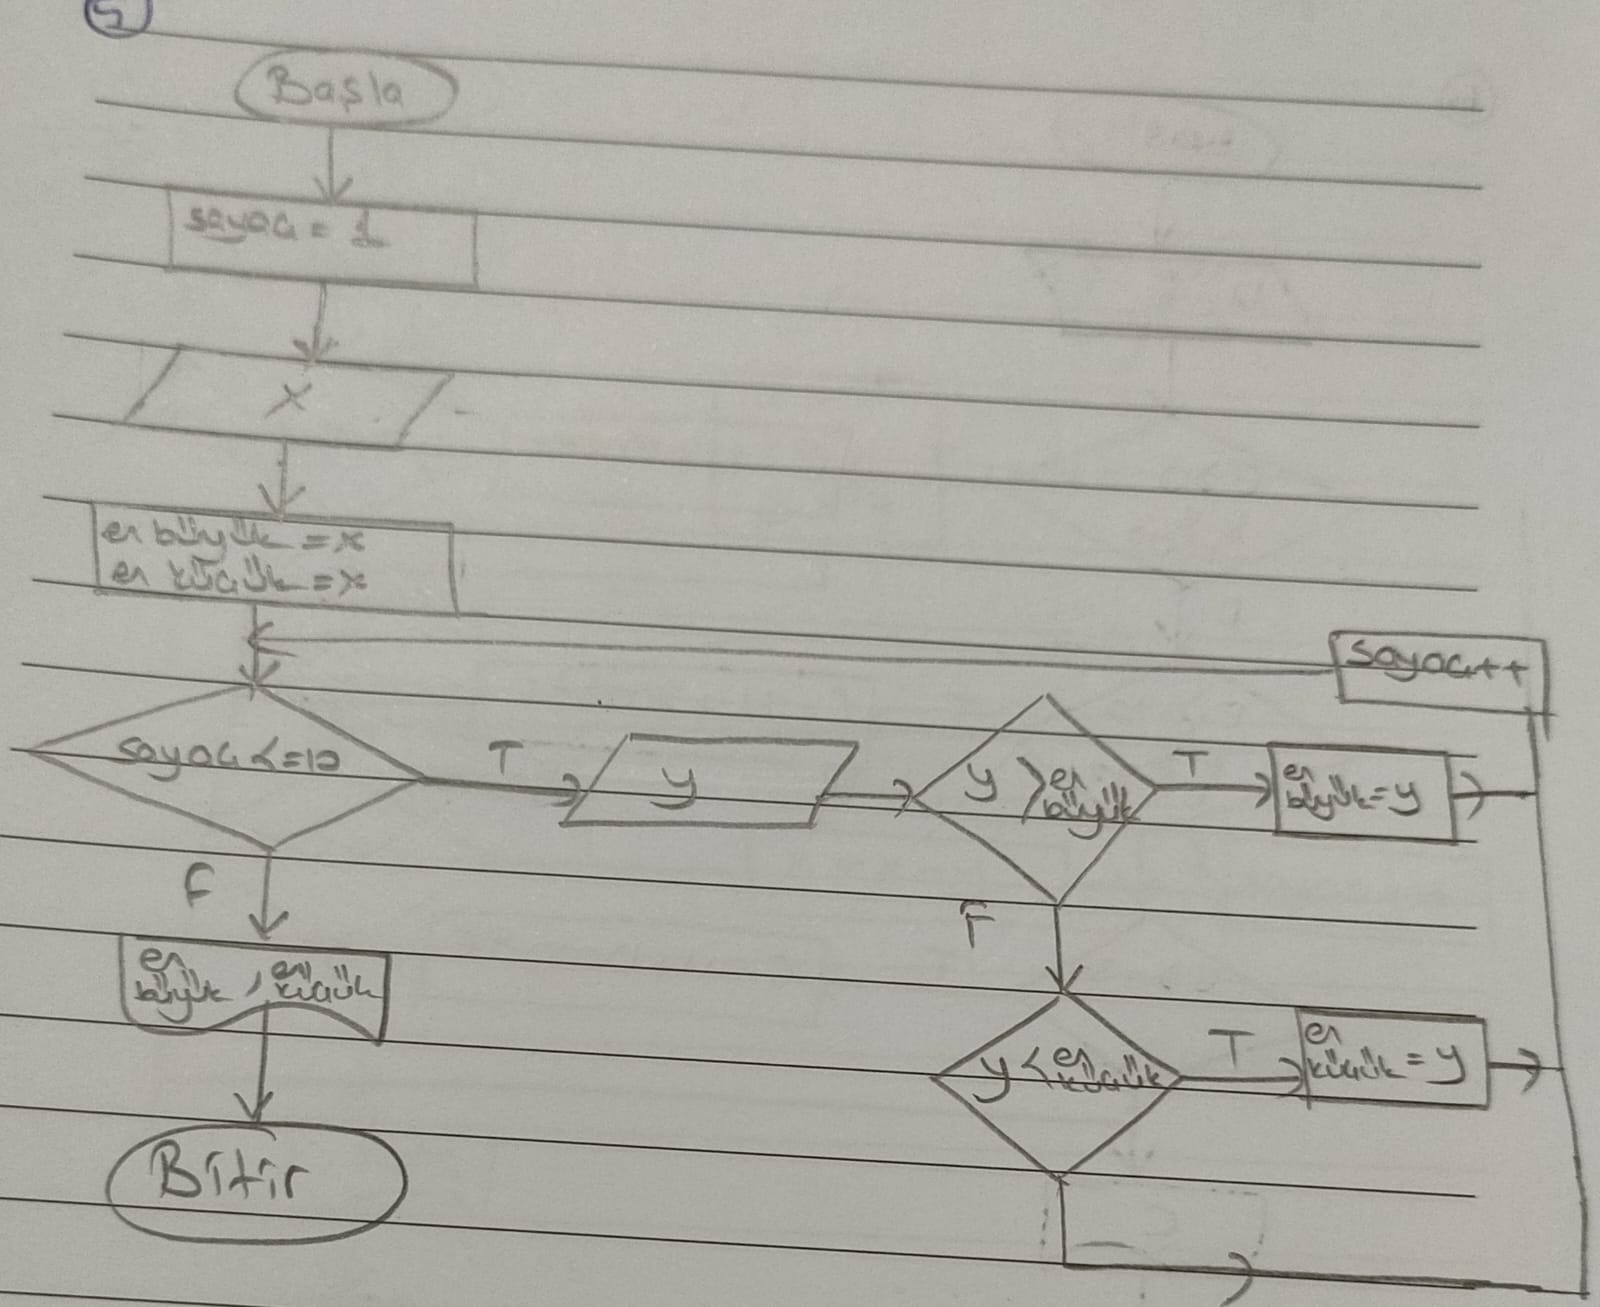 5
Başla
sayaç = 1
x
en büyük = x
en küçük = x
sayaç++
sayaç <= 10
T
y
y > en büyük
T
en
büyük = y
F
F
en
büyük , en küçük
y < en küçük
T
en
küçük = y
Bitir